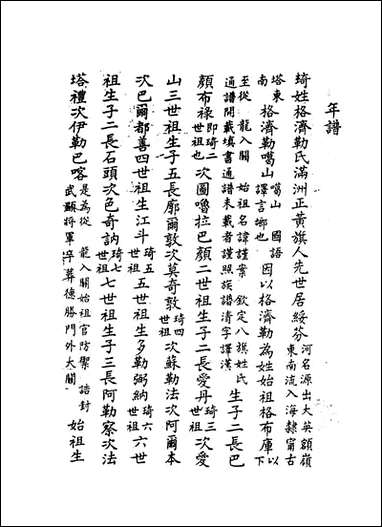 年譜
琦姓格濟勒氏滿洲正黃旗人先世居綏芬河名源出大英額嶺東南流入海隸甯古
塔東南格濟勒噶山噶山國語譯言鄉也因以格濟勒為姓始祖格布庫以下
至從 龍入關 始祖名諱謹案 欽定八旗姓氏通譜開載填書通譜未載者謹照族譜清字譯漢生子二長巴
顏布祿即琦二世祖也次圖嚕拉巴顏二世祖生子二長愛丹琦三世祖次愛
山三世祖生子五長廓爾敦次莫奇敦琦四世祖次蘇勒法次阿爾本
次巴爾都善四世祖生江斗琦五世祖五世祖生多勒弼納琦六世祖六世
祖生子二長石頭次色奇訥琦七世祖七世祖生子三長阿勒察次法
塔禮次伊勒巴喀是為從 龍入關始祖官防禦 誥封武顯將軍卒葬德勝門外大關始祖生